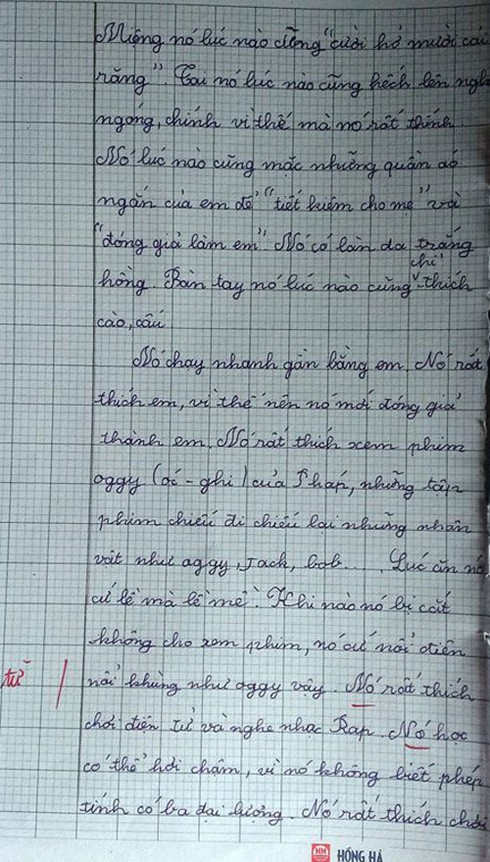 Miệng nó lúc nào cũng "cười hở mười cái
răng". Tai nó lúc nào cũng hếch lên nghe
ngóng, chính vì thế mà nó rất thính
Nó lúc nào cũng mặc những quần áo
ngắn của em để "tiết kiệm cho mẹ" và
"đóng giả làm em". Nó có làn da trắng
hồng. Bàn tay nó lúc nào cũng chỉ thích
cào, cấu
Nó chạy nhanh gần bằng em. Nó rất
thích em, vì thế nên nó mới đóng giả
thành em. Nó rất thích xem phim
oggy (óc-ghi) của Pháp, những tập
phim chiếu đi chiếu lại những nhân
vật như oggy, Jack, bob.... Lúc ăn nó
cứ lề mà lề mề. Khi nào nó bị cắt
không cho xem phim, nó cứ nổi điên
nổi khùng như oggy vậy. Nó rất thích
tử
chơi điện tử và nghe nhạc Rap. Nó học
có thể hơi chậm, vì nó không biết phép
tính có ba đại lượng. Nó rất thích chơi
HỒNG HÀ